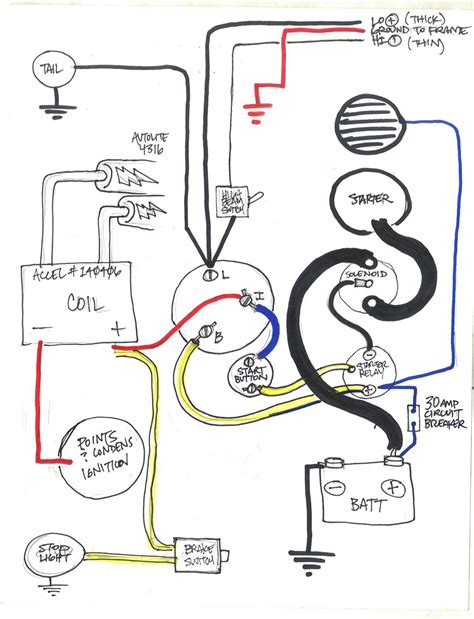 LO + (THICK)
GROUND TO FRAME
HI (THIN)
TAIL
AUTOLITE
4316
BEAM
SWITCH
STARTER
ACCEL # 140406
COIL
- +
L
I
B
SOLENOID
START
BUTTON
-
STARTER
RELAY
+
30 AMP
CIRCUIT
BREAKER
POINTS
? CONDENS
IGNITION
- +
BATT
STOP
LIGHT
BRAKE
SWITCH